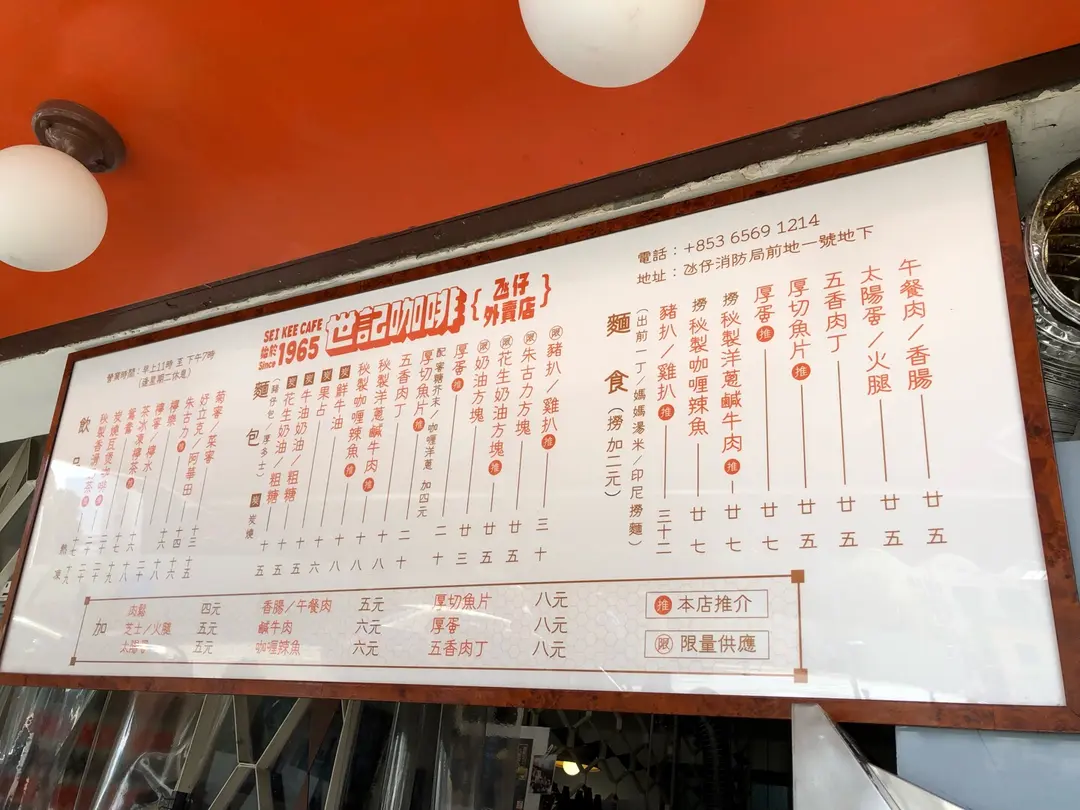 SEI KEE CAFE
始於
Since 1965
世記咖啡
{氹仔外賣店}
電話：+853 6569 1214
地址：氹仔消防局前地一號地下
營業時間：早上11時 至 下午7時
(逢星期二休息)
飲
熱
凍
秘製香滑奶茶 推
炭燒瓦煲咖啡 推
鴛鴦
檸樂
朱古力
好立克／阿華田
菊蜜／菜蜜
麵包 (豬仔包／厚多士) 炭 炭燒
炭 花生奶油／粗糖 十五
炭 牛油奶油／粗糖 十五
炭 果占 十五
炭 鮮牛油 十六
秘製咖喱辣魚 推 十八
秘製洋蔥鹹牛肉 推 十八
五香肉丁 十八
厚切魚片 推 二十
配蜜糖芥末／咖喱洋蔥 加四元
厚蛋 推 二十
限 奶油方塊 廿三
限 花生奶油方塊 推 廿五
限 朱古力方塊 廿五
限 豬扒／雞扒 推 三十
麵食 (撈加二元)
(出前一丁／媽媽湯米／印尼撈麵)
豬扒／雞扒 推 三十二
撈 秘製咖喱辣魚 廿七
撈 秘製洋蔥鹹牛肉 推 廿七
厚蛋 推 廿七
厚切魚片 推 廿五
五香肉丁 廿五
太陽蛋／火腿 廿五
午餐肉／香腸 廿五
加
肉鬆 四元 香腸／午餐肉 五元 厚切魚片 八元
芝士／火腿 五元 鹹牛肉 六元 厚蛋 八元
太陽蛋 五元 咖喱辣魚 六元 五香肉丁 八元
推 本店推介
限 限量供應